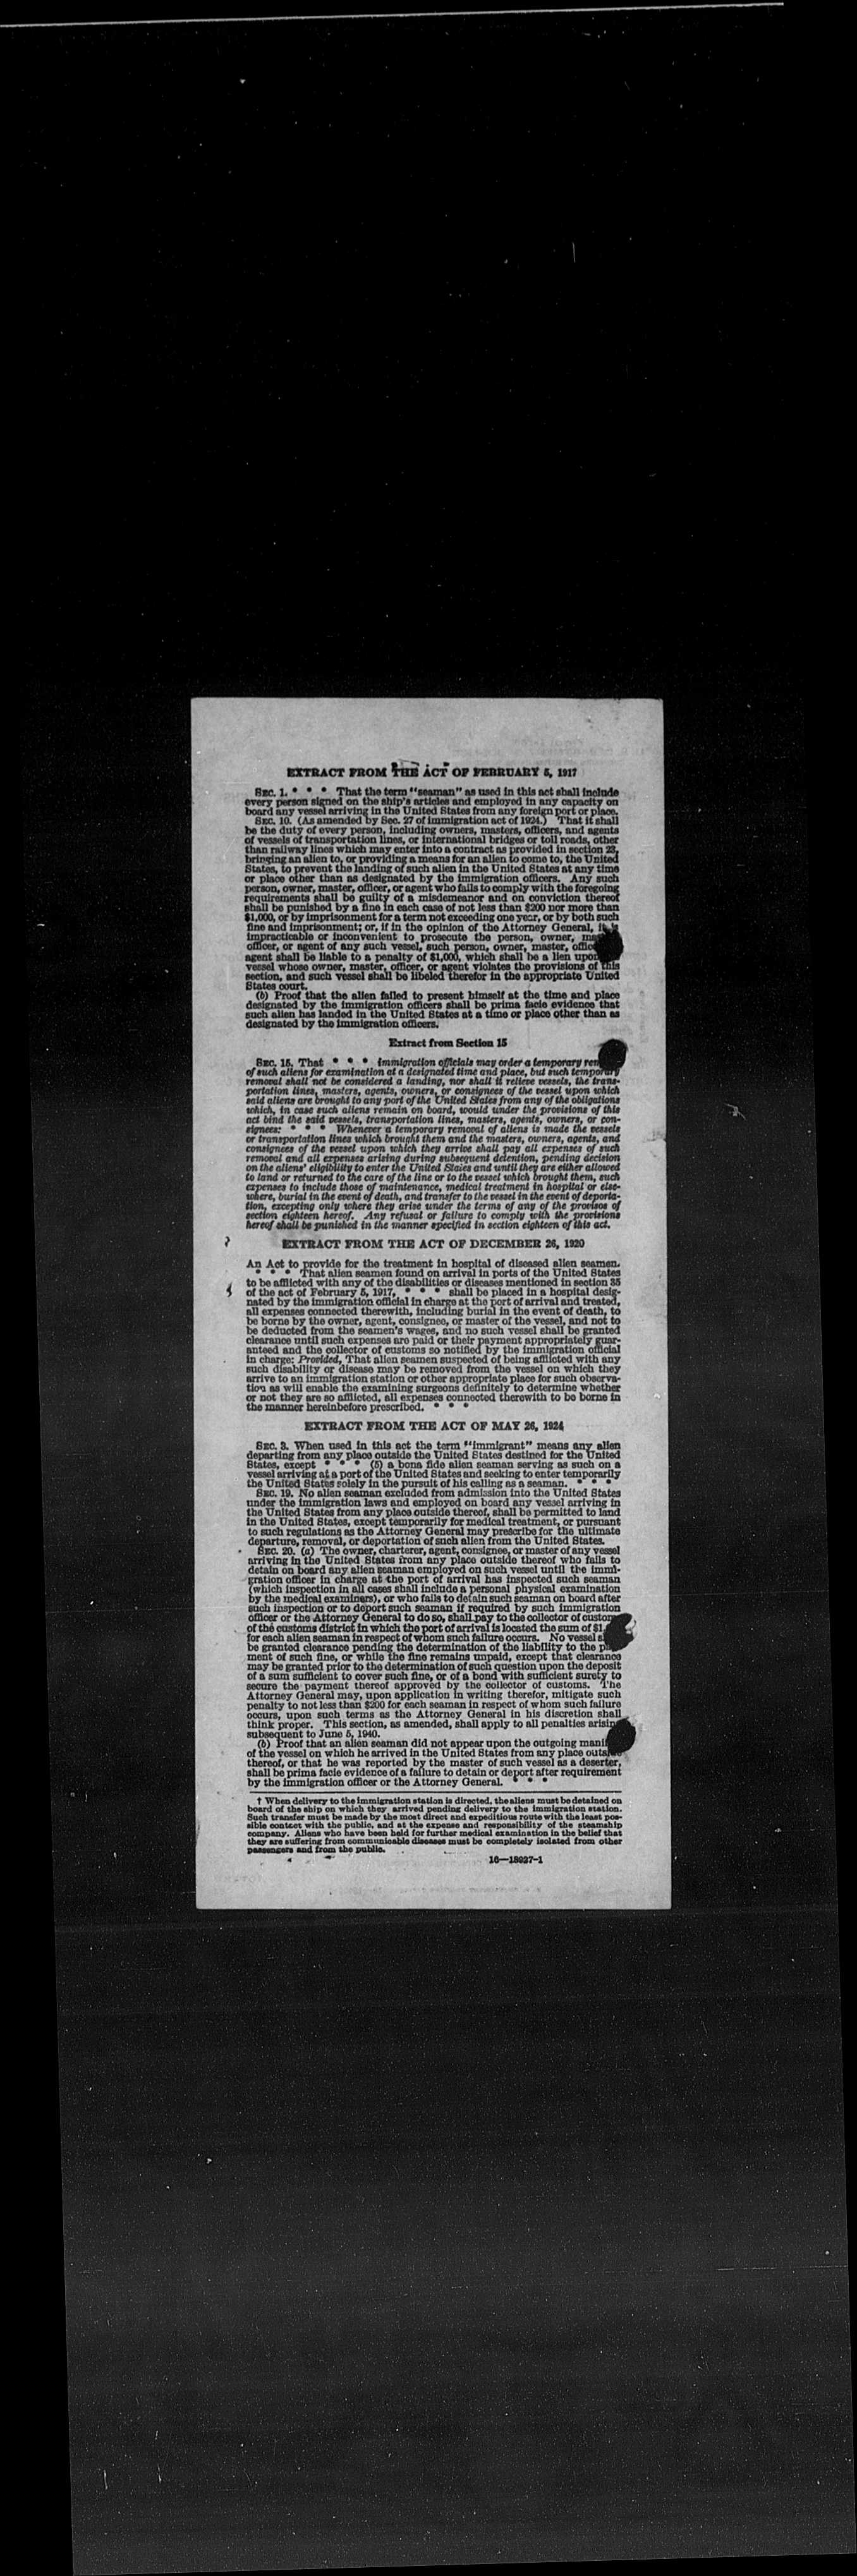 EXTRACT FROM THE ACT OF FEBRUARY 5, 1917
SEC. 1. * * * That the term "seaman" as used in this act shall include
every person signed on the ship's articles and employed in any capacity on
board any vessel arriving in the United States from any foreign port or place.
SEC. 10. (As amended by Sec. 27 of immigration act of 1924.) That it shall
be the duty of every person, including owners, masters, officers, and agents
of vessels of transportation lines, or international bridges or toll roads, other
than railway lines which may enter into a contract as provided in section 23,
bringing an alien to, or providing a means for an alien to come to, the United
States, to prevent the landing of such alien in the United States at any time
or place other than as designated by the immigration officers. Any such
person, owner, master, officer, or agent who fails to comply with the foregoing
requirements shall be guilty of a misdemeanor and on conviction thereof
shall be punished by a fine in each case of not less than $200 nor more than
$1,000, or by imprisonment for a term not exceeding one year, or by both such
fine and imprisonment; or, if in the opinion of the Attorney General, it is
impracticable or inconvenient to prosecute the person, owner, mas
officer, or agent of any such vessel, such person, owner, master, office
agent shall be liable to a penalty of $1,000, which shall be a lien upon
vessel whose owner, master, officer, or agent violates the provisions of this
section, and such vessel shall be libeled therefor in the appropriate United
States court.
(b) Proof that the alien failed to present himself at the time and place
designated by the immigration officers shall be prima facie evidence that
such alien has landed in the United States at a time or place other than as
designated by the immigration officers.
Extract from Section 15
SEC. 15. That * * * immigration officials may order a temporary rem
of such aliens for examination at a designated time and place, but such temporary
removal shall not be considered a landing, nor shall it relieve vessels, the trans-
portation lines, masters, agents, owners, or consignees of the vessel upon which
said aliens are brought to any port of the United States from any of the obligations
which, in case such aliens remain on board, would under the provisions of this
act bind the said vessels, transportation lines, masters, agents, owners, or con-
signees: * * * Whenever a temporary removal of aliens is made the vessels
or transportation lines which brought them and the masters, owners, agents, and
consignees of the vessel upon which they arrive shall pay all expenses of such
removal and all expenses arising during subsequent detention, pending decision
on the aliens' eligibility to enter the United States and until they are either allowed
to land or returned to the care of the line or to the vessel which brought them, such
expenses to include those of maintenance, medical treatment in hospital or else-
where, burial in the event of death, and transfer to the vessel in the event of deporta-
tion, excepting only where they arise under the terms of any of the provisos of
section eighteen hereof. Any refusal or failure to comply with the provisions
hereof shall be punished in the manner specified in section eighteen of this act.
EXTRACT FROM THE ACT OF DECEMBER 26, 1920
An Act to provide for the treatment in hospital of diseased alien seamen.
* * * That alien seamen found on arrival in ports of the United States
to be afflicted with any of the disabilities or diseases mentioned in section 35
of the act of February 5, 1917, * * * shall be placed in a hospital desig-
nated by the immigration official in charge at the port of arrival and treated,
all expenses connected therewith, including burial in the event of death, to
be borne by the owner, agent, consignee, or master of the vessel, and not to
be deducted from the seamen's wages, and no such vessel shall be granted
clearance until such expenses are paid or their payment appropriately guar-
anteed and the collector of customs so notified by the immigration official
in charge: Provided, That alien seamen suspected of being afflicted with any
such disability or disease may be removed from the vessel on which they
arrive to an immigration station or other appropriate place for such observa-
tion as will enable the examining surgeons definitely to determine whether
or not they are so afflicted, all expenses connected therewith to be borne in
the manner hereinbefore prescribed. * * *
EXTRACT FROM THE ACT OF MAY 26, 1924
SEC. 3. When used in this act the term "immigrant" means any alien
departing from any place outside the United States destined for the United
States, except * * * (5) a bona fide alien seaman serving as such on a
vessel arriving at a port of the United States and seeking to enter temporarily
the United States solely in the pursuit of his calling as a seaman. * * *
SEC. 19. No alien seaman excluded from admission into the United States
under the immigration laws and employed on board any vessel arriving in
the United States from any place outside thereof, shall be permitted to land
in the United States, except temporarily for medical treatment, or pursuant
to such regulations as the Attorney General may prescribe for the ultimate
departure, removal, or deportation of such alien from the United States.
SEC. 20. (a) The owner, charterer, agent, consignee, or master of any vessel
arriving in the United States from any place outside thereof who fails to
detain on board any alien seaman employed on such vessel until the immi-
gration officer in charge at the port of arrival has inspected such seaman
(which inspection in all cases shall include a personal physical examination
by the medical examiners), or who fails to detain such seaman on board after
such inspection or to deport such seaman if required by such immigration
officer or the Attorney General to do so, shall pay to the collector of customs
of the customs district in which the port of arrival is located the sum of $1,
for each alien seaman in respect of whom such failure occurs. No vessel s
be granted clearance pending the determination of the liability to the pay
ment of such fine, or while the fine remains unpaid, except that clearance
may be granted prior to the determination of such question upon the deposit
of a sum sufficient to cover such fine, or of a bond with sufficient surety to
secure the payment thereof approved by the collector of customs. The
Attorney General may, upon application in writing therefor, mitigate such
penalty to not less than $200 for each seaman in respect of whom such failure
occurs, upon such terms as the Attorney General in his discretion shall
think proper. This section, as amended, shall apply to all penalties arising
subsequent to June 5, 1940.
(b) Proof that an alien seaman did not appear upon the outgoing manif
of the vessel on which he arrived in the United States from any place outside
thereof, or that he was reported by the master of such vessel as a deserter,
shall be prima facie evidence of a failure to detain or deport after requirement
by the immigration officer or the Attorney General. * * *
† When delivery to the immigration station is directed, the aliens must be detained on
board of the ship on which they arrived pending delivery to the immigration station.
Such transfer must be made by the most direct and expeditious route with the least pos-
sible contact with the public, and at the expense and responsibility of the steamship
company. Aliens who have been held for further medical examination in the belief that
they are suffering from communicable diseases must be completely isolated from other
passengers and from the public.
16—18927-1